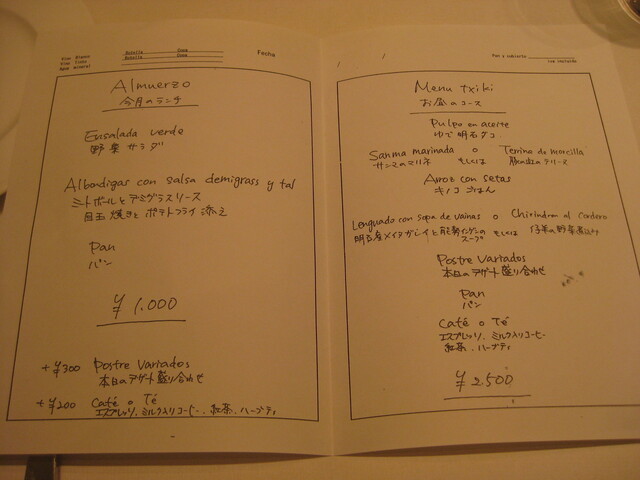 Vino Blanco
Vino Tinto
Agua mineral
Botella Copa
Botella Copa
Fecha
Almuerzo
今月のランチ
Ensalada verde
野菜サラダ
Albondigas con salsa demigrass y tal
ミートボールとデミグラスソース
目玉焼きとポテトフライ添え
Pan
パン
¥1.000
+¥300 Postre Variados
本日のデザート盛り合わせ
+¥200 Café o Té
エスプレッソ、ミルク入りコーヒー、紅茶、ハーブティ
Pan y cubierto
Menu txiki
お昼のコース
Pulpo en aceite
ゆで明石ダコ
Sanma marinada o Terrina de morcilla
サンマのマリネ もしくは テリーヌ
Arroz con setas
キノコごはん
Lenguado con sopa de vainas o Chirindron al cordero
明石産メイタガレイと インゲンの スープ もしくは 仔羊の野菜煮込み
Postre Variados
本日のデザート盛り合わせ
Pan
パン
Café o Té
エスプレッソ、ミルク入りコーヒー
紅茶、ハーブティ
¥2500